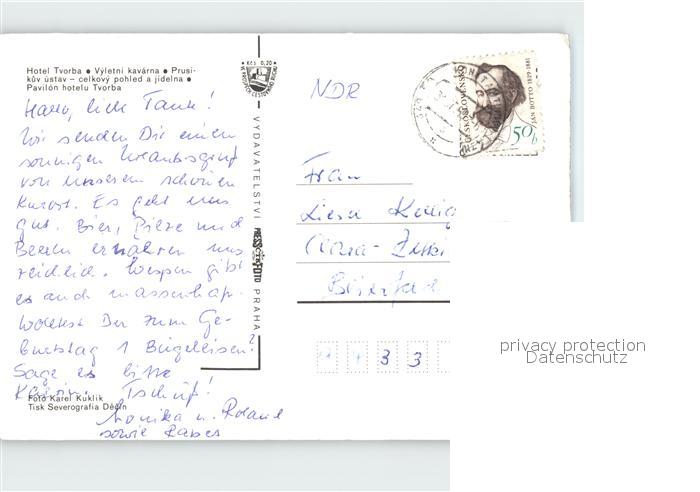 Hotel Tvorba ● Výletní kavárna ● Prusi-
kův ústav – celkový pohled a jídelna ●
Pavilón hotelu Tvorba
Hallo, liebe Tante!
Wir senden Dir einen
sonnigen Urlaubsgruß
von unserem schönen
Kurort. Es geht uns
gut. Bier, Pilze und
Beeren ernähren uns
reichlich. Wespen gibt
es auch massenhaft.
Wolltest Du zum Ge-
burtstag 1 Bügeleisen?
Sage es bitte
Tschüß!
Foto Karel Kuklík
Tisk Severografia Děčín
Monika u. Roland
sowie
Kčs 0,20
VYDAVATELSTVÍ PRESSFOTO PRAHA
NDR
ČESKOSLOVENSKO
JAN BOTTO 1829-1881
50h
Frau
Liesa
Clara-
3 3
privacy protection
Datenschutz